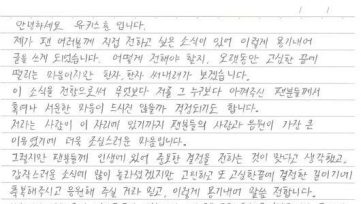 안녕하세요. 유키스훈 입니다.
제가 팬 여러분께 직접 전하고 싶은 소식이 있어 이렇게 용기내어
글을 쓰게 되었습니다. 어떻게 전해야 할지, 오랜동안 고심한 끝에
떨리는 마음이지만 한자, 한자 써내려가 보겠습니다.
이 소식을 전함으로써 무엇보다 저를 그 누구보다 아껴주신 팬분들께서
혹여나 서운한 마음이 드시진 않을까 걱정되기도 합니다.
저라는 사람이 이 자리에 있기까지 팬분들의 사랑과 응원이 가장 큰
이유였기에 더욱 조심스러운 마음입니다.
그렇지만 팬분들께 인생에 있어 중요한 결정을 전하는 것이 맞다고 생각했고,
갑작스러운 소식에 많이 놀라셨겠지만 고민하고 또 고심한끝에 결정한 일이기에
축복해주시고 응원해 주실 거라 믿고, 이렇게 용기내어 말씀 전합니다.